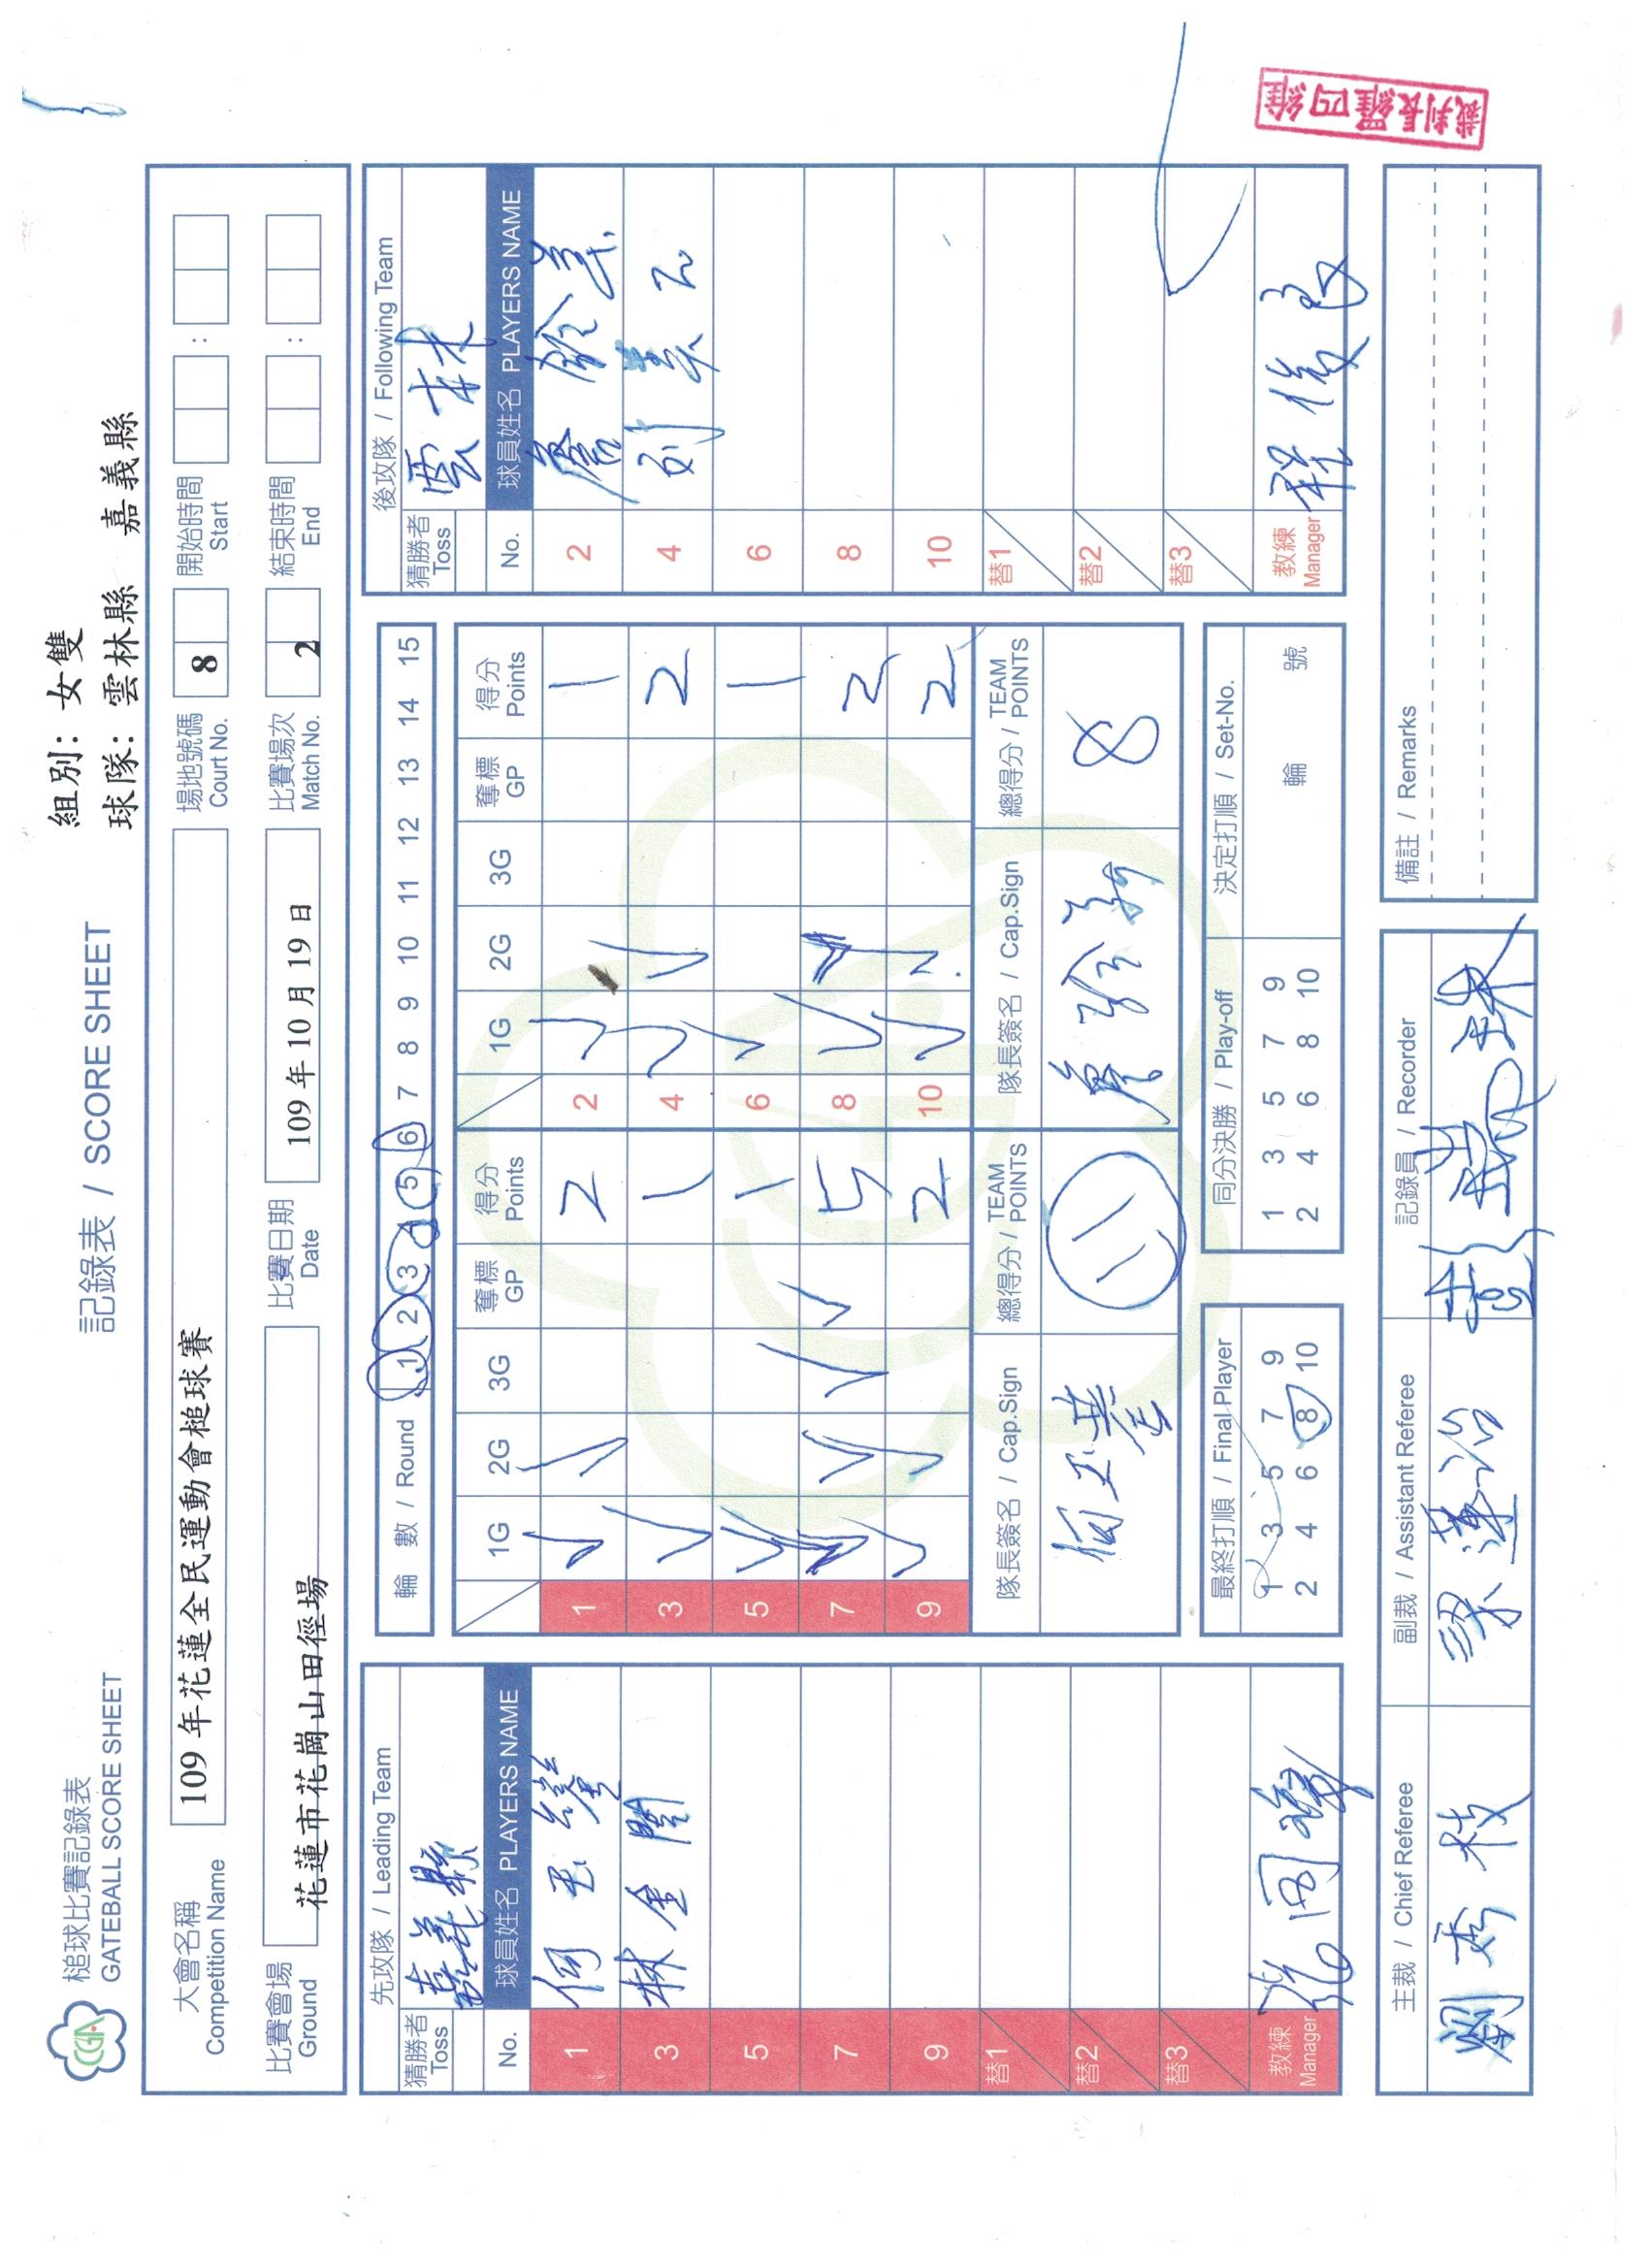 組別：女雙
球隊：雲林縣 嘉義縣
槌球比賽記錄表
GATEBALL SCORE SHEET
記錄表 / SCORE SHEET
大會名稱 Competition Name 109 年花蓮全民運動會槌球賽
場地號碼 Court No. 8
開始時間 Start :
比賽會場 Ground 花蓮市花崗山田徑場
比賽日期 Date 109 年 10 月 19 日
比賽場次 Match No. 2
結束時間 End :
先攻隊 / Leading Team
猜勝者 Toss 嘉義縣
No. 球員姓名 PLAYERS NAME
1 何玉
3 林金
5
7
9
替1
替2
替3
教練 Manager
輪 數 / Round 1 2 3 4 5 6 7 8 9 10 11 12 13 14 15
1G 2G 3G 奪標 GP 得分 Points 1G 2G 3G 奪標 GP 得分 Points
1 ✓ ✓ 2 2 ✓ 1
3 ✓ 1 4 ✓ ✓ 2
5 ✓ 1 6 ✓ 1
7 ✓ ✓ ✓ ✓ 5 8 ✓ ✓ 2
9 ✓ ✓ 2 10 ✓ ✓ 2
隊長簽名 / Cap.Sign 總得分 / TEAM POINTS 隊長簽名 / Cap.Sign 總得分 / TEAM POINTS
11 8
最終打順 / Final Player
1 3 5 7 9
2 4 6 8 10
同分決勝 / Play-off
1 3 5 7 9
2 4 6 8 10
決定打順 / Set-No.
輪 號
後攻隊 / Following Team
猜勝者 Toss 雲林
No. 球員姓名 PLAYERS NAME
2 詹
4 劉美
6
8
10
替1
替2
替3
教練 Manager
主裁 / Chief Referee 劉秀枝
副裁 / Assistant Referee 梁蓮
記錄員 / Recorder
備註 / Remarks
裁判長羅四維
CGA